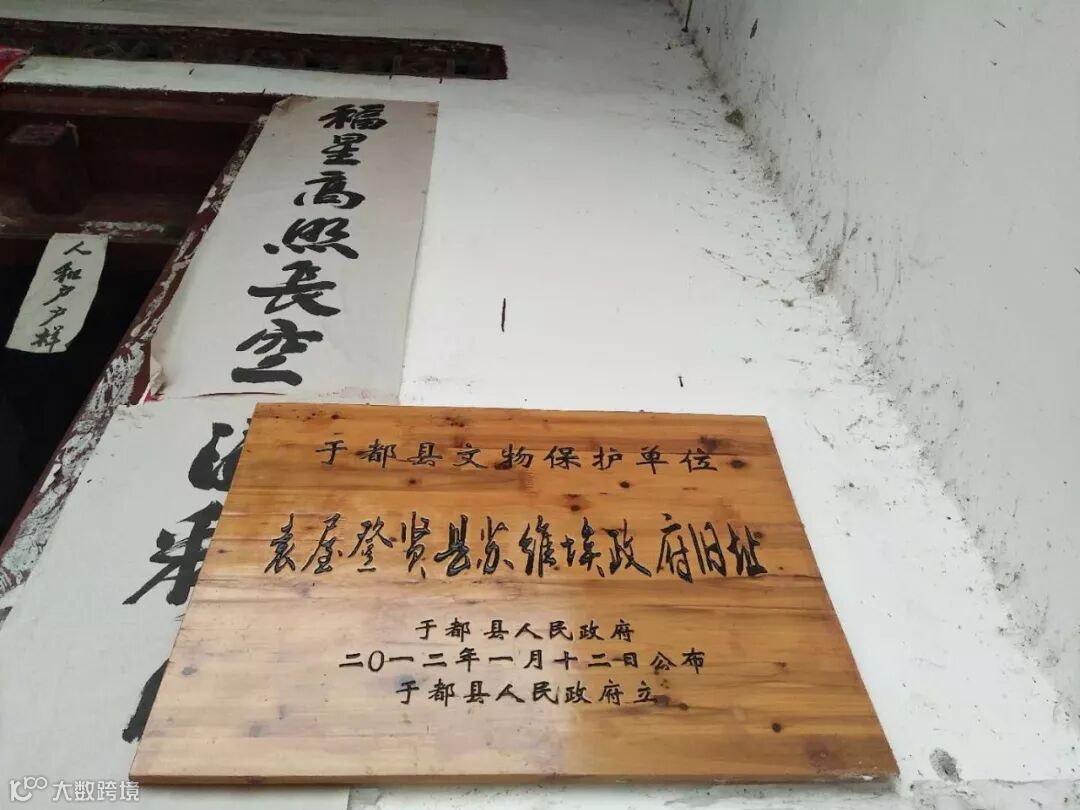 福星高照长空
人和户户祥
于都县文物保护单位
袁屋登贤县苏维埃政府旧址
于都县人民政府
二〇一二年一月十二日公布
于都县人民政府立
大数跨境